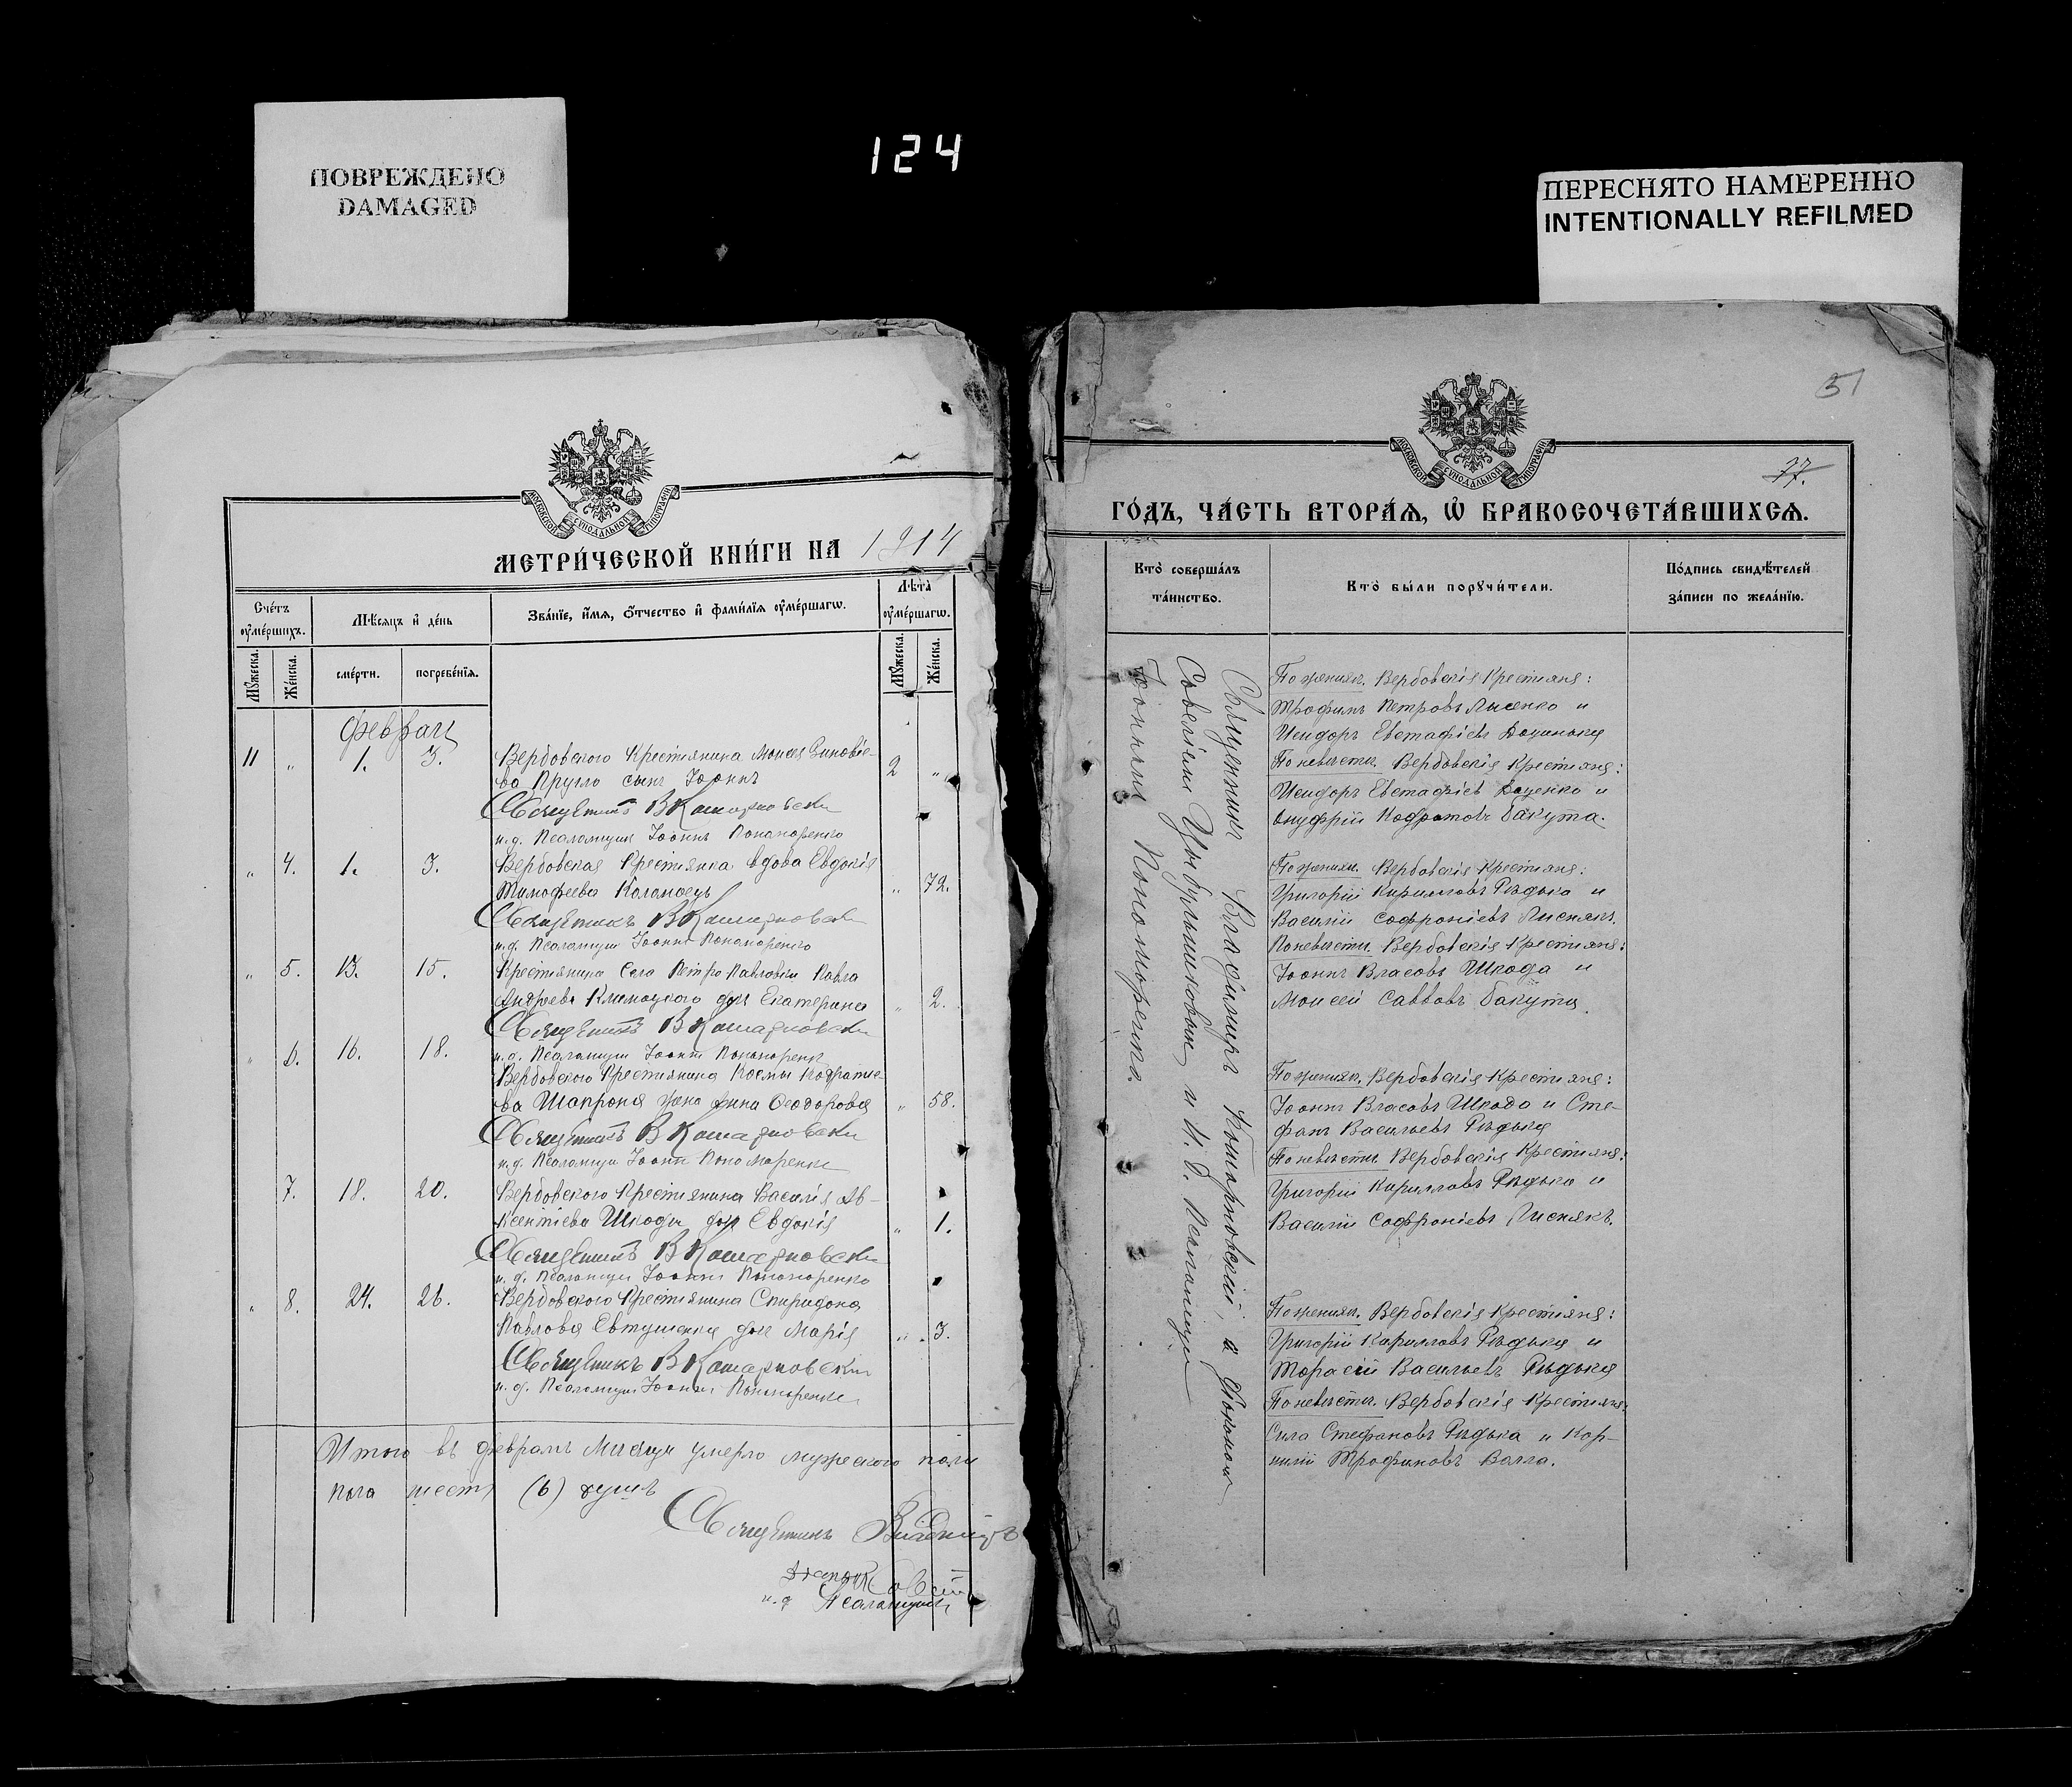 124
ПОВРЕЖДЕНО
DAMAGED
ПЕРЕСНЯТО НАМЕРЕННО
INTENTIONALLY REFILMED
МОСКОВСКОЙ СУНОДАЛЬНОЙ ТИПОГРАФІИ
МЕТРИ́ЧЕСКОЙ КНИ́ГИ НА 1914
Сче́тъ
ᲂу҆ме́ршихъ.
Мѣ́сяцъ и҆ де́нь
Зва́нїе, и҆́мѧ, ѻ҆́тчество и҆ фами́лїѧ ᲂу҆ме́ршагѡ.
Лѣ́та
ᲂу҆ме́ршагѡ.
Мꙋ́жеска.
Же́нска.
сме́рти.
погребе́нїѧ.
Мꙋ́жеска.
Же́нска.
Февраль
11 " 1. 3. Вербовского Крестьянина Моисея Зиновіе-
ва Кругло сынъ Іоаннъ 2 "
Священникъ В Комарновскій
и.д. Псаломщик Іоаннъ Пономаренко
" 4. 1. 3. Вербовская Крестьянка вдова Евдокія
Тимофеева Коломоецъ " 72.
Священникъ В Комарновскій
и.д. Псаломщик Іоаннъ Пономаренко
" 5. 13. 15. Крестьянина Села Петро Павловки Павла
Андреева дочь Екатерина " 2.
Священникъ В Комарновскій
и.д. Псаломщик Іоаннъ Пономаренко
" 6. 16. 18.
Вербовского Крестьянина Космы Кодратіе-
ва Шапрона жена Анна Феодорова " 58.
Священникъ В Комарновскій
и.д. Псаломщик Іоаннъ Пономаренко
7. 18. 20. Вербовского Крестьянина Василія Ав-
ксентіева Шкоды дочь Евдокія " 1.
Священникъ В Комарновскій
и.д. Псаломщик Іоаннъ Пономаренко
" 8. 24. 26. Вербовского Крестьянина Спиридона
Павлова Евтушенка дочь Марія " 3.
Священникъ В Комарновскій
и.д. Псаломщик Іоаннъ Пономаренко
Итого въ феврале Месяце умерло мужеского
пола шесть (6) душъ
Священникъ Владиміръ
и.д. Псаломщикъ
51
77.
МОСКОВСКОЙ СУНОДАЛЬНОЙ ТИПОГРАФІИ
ГО́ДЪ, ЧА́СТЬ ВТОРА́Ѧ, Ѡ҆ БРАКОСОЧЕТА́ВШИХСѦ.
Кто̀ соверша́лъ
та́инство.
Кто̀ бы́ли порꙋчи́тели.
По́дпись свидѣ́телей
за́писи по жела́нїю.
Священникъ Владиміръ Комарновскій, съ діакономъ
Савеліемъ Цыбульниковымъ и И. д. Псаломщика
Іоанномъ Пономаренко.
По женихѣ. Вербовскія Крестьяне:
Трофимъ Петровъ Лысенко и
Исидоръ Евстафіевъ Доценько
По невѣстѣ. Вербовскія Крестьяне:
Исидоръ Евстафіевъ Доценко и
Онуфрій Кодратовъ Бакута.
По женихѣ. Вербовскія Крестьяне:
Григорій Кирилловъ Рѣдька и
Василій Софроніевъ Лиснякъ.
По невѣстѣ. Вербовскія Крестьяне:
Іоаннъ Власовъ Шкода и
Моисей Саввовъ Бакута.
По женихѣ. Вербовскія Крестьяне:
Іоаннъ Власовъ Шкода и Сте-
фанъ Васильевъ Рѣдька
По невѣстѣ. Вербовскія Крестьяне:
Григорій Кирилловъ Рѣдька и
Василій Софроніевъ Лиснякъ.
По женихѣ. Вербовскія Крестьяне:
Григорій Кирилловъ Рѣдька и
Тарасій Васильевъ Рѣдька
По невѣстѣ. Вербовскія Крестьяне
Сила Стефановъ Рѣдька и Кор-
нилій Трофимовъ Валла.